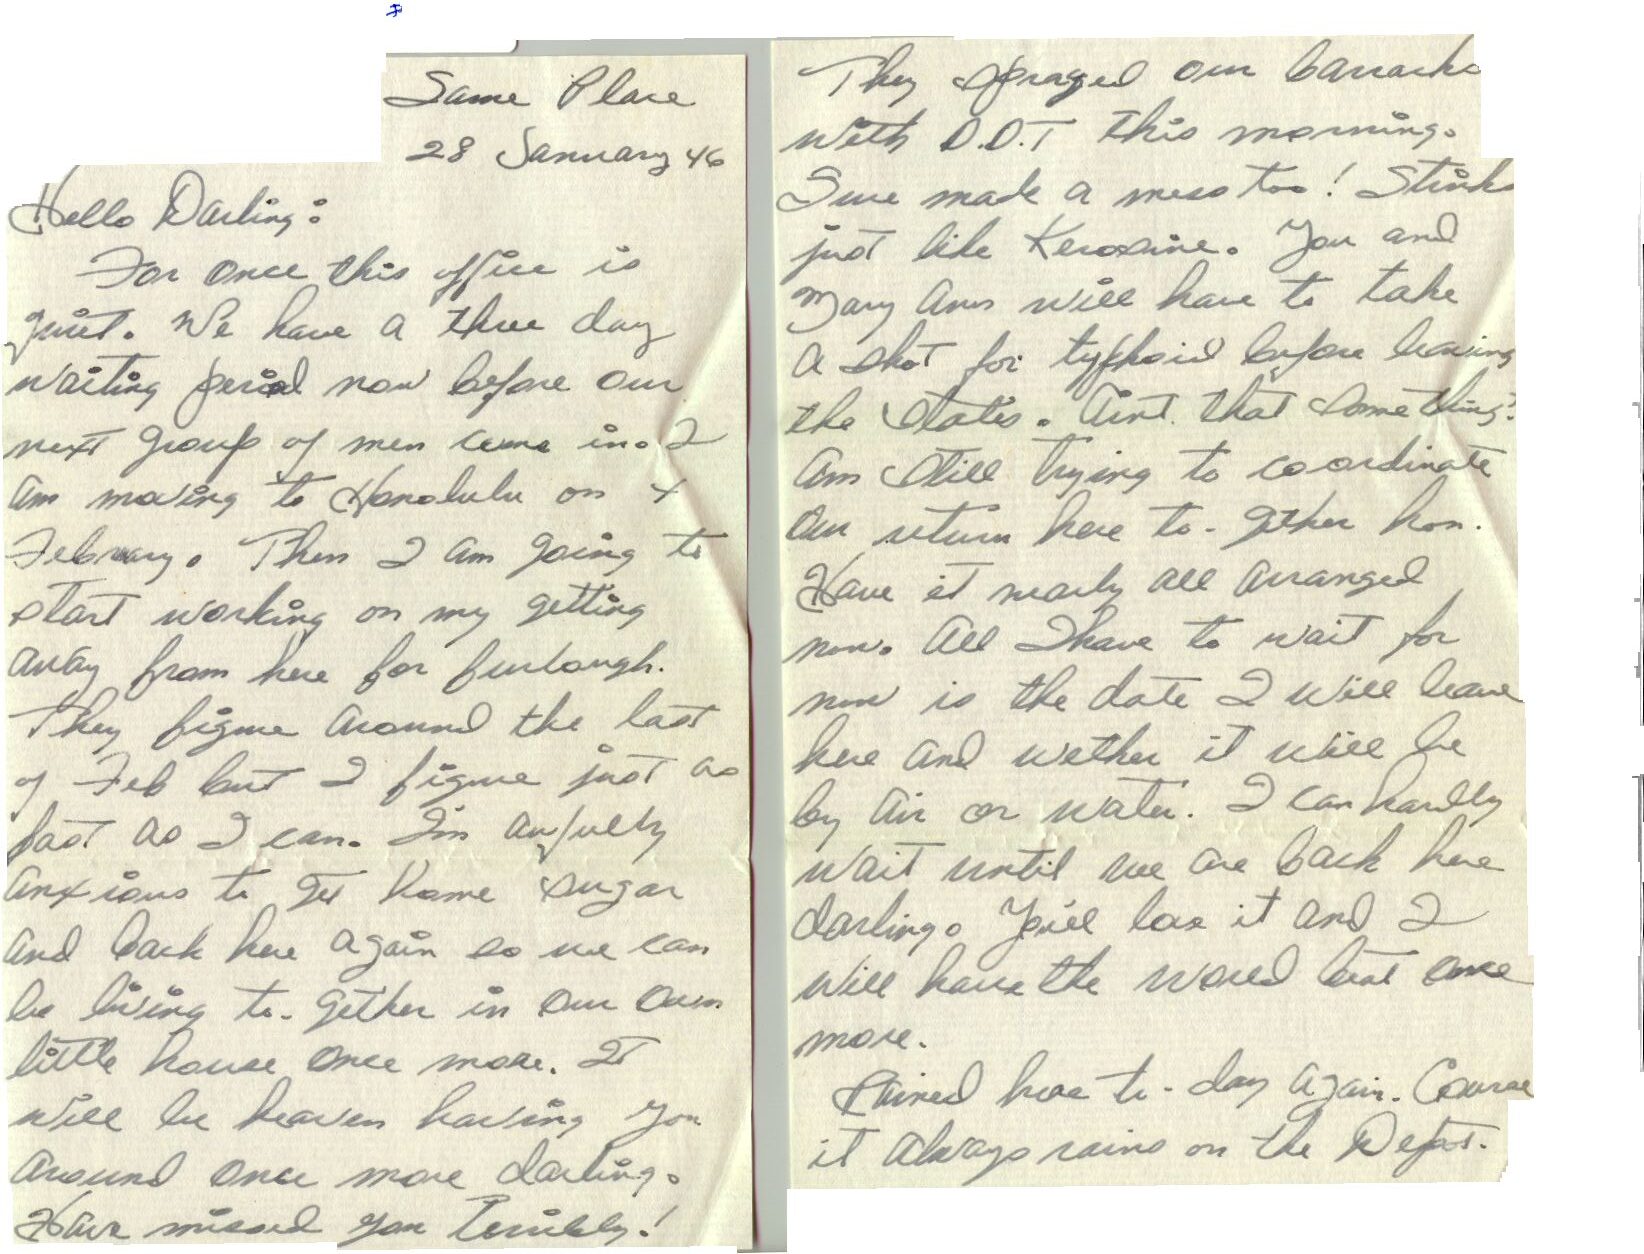 Same Place
28 January 46
Hello Darling:
For once this office is
quiet. We have a three day
waiting period now before our
next group of men come in. I
am moving to Honolulu on 4
February. Then I am going to
start working on my getting
away from here for furlough.
They figure around the last
of Feb but I figure just as
fast as I can. I'm awfully
anxious to get home sugar
and back here again so we can
be living to-gether in our own
little house once more. It
will be heaven having you
around once more darling.
Have missed you terribly!
They sprayed our barracks
with D.D.T this morning.
Sure made a mess too! Stinks
just like Kerosine. You and
Mary Ann will have to take
a shot for typhoid before leaving
the states. Aint that something?
Am still trying to coordinate
our return here to-gether hon.
Have it nearly all arranged
now. All I have to wait for
now is the date I will leave
here and wether it will be
by air or water. I can hardly
wait until we are back here
darling. You'll love it and I
will have the world beat once
more.
Rained here to-day again. Course
it always rains on the Depot.